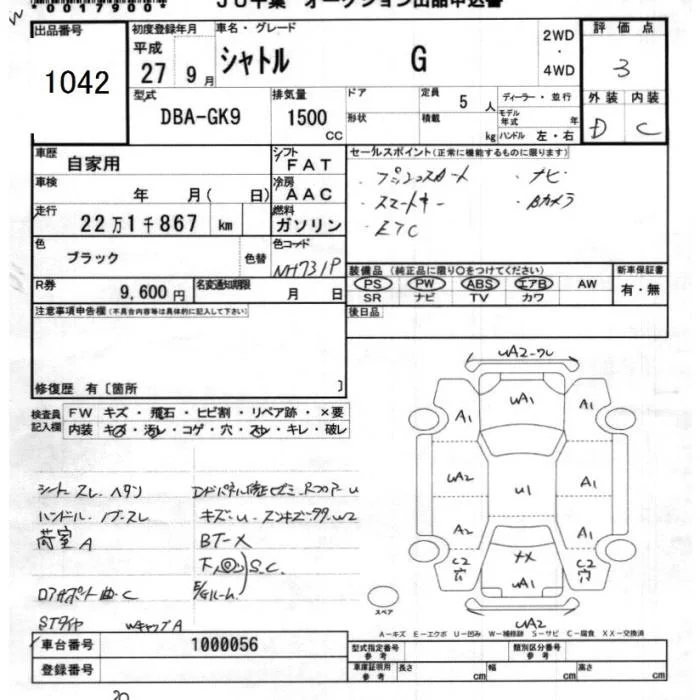 JU千葉 オークション出品申込書
出品番号 1042
初度登録年月 平成 27年 9月
車名・グレード シャトル G
2WD・4WD
評価点 3
外装 D 内装 C
型式 DBA-GK9
排気量 1500 CC
ドア 形状
定員 5 人
積載 kg
ディーラー・並行
モデル年式 年
ハンドル 左・右
車歴 自家用
シフト FAT
車検 年 月( 日)
冷房 AAC
走行 22万1千867 km
燃料 ガソリン
色 ブラック 色替
色コード NH731P
R券 9,600円
名変通知期限 月 日
セールスポイント(正常に機能するものに限ります)
・プッシュスタート ・ナビ
・スマートキー ・Bカメラ
・ETC
装備品(純正品に限り○をつけてください)
PS PW ABS エアB AW
SR ナビ TV カワ
新車保証書 有・無
後日品
注意事項申告欄(不具合内容等は具体的に記入して下さい)
修復歴 有〔箇所 〕
検査員記入欄
FW キズ・飛石・ヒビ割・リペア跡・×要
内装 キズ・汚レ・コゲ・穴・スレ・キレ・破レ
シート スレ・ヘタリ
ハンドル・ノブ・スレ
荷室 A
キズ・U・
BT-X
S.C.
曲・C
A
UA2
UA1
A1
A1
UA2
U1
A1
A2
A1
C2 穴
UA1
C2 穴
UA2
スペア
A-キズ E-エクボ U-凹み W-補修跡 S-サビ C-腐食 XX-交換済
車台番号 1000056
登録番号
型式指定番号 参考
類別区分番号 参考
車庫証明用 参考
長さ cm 幅 cm 高さ cm